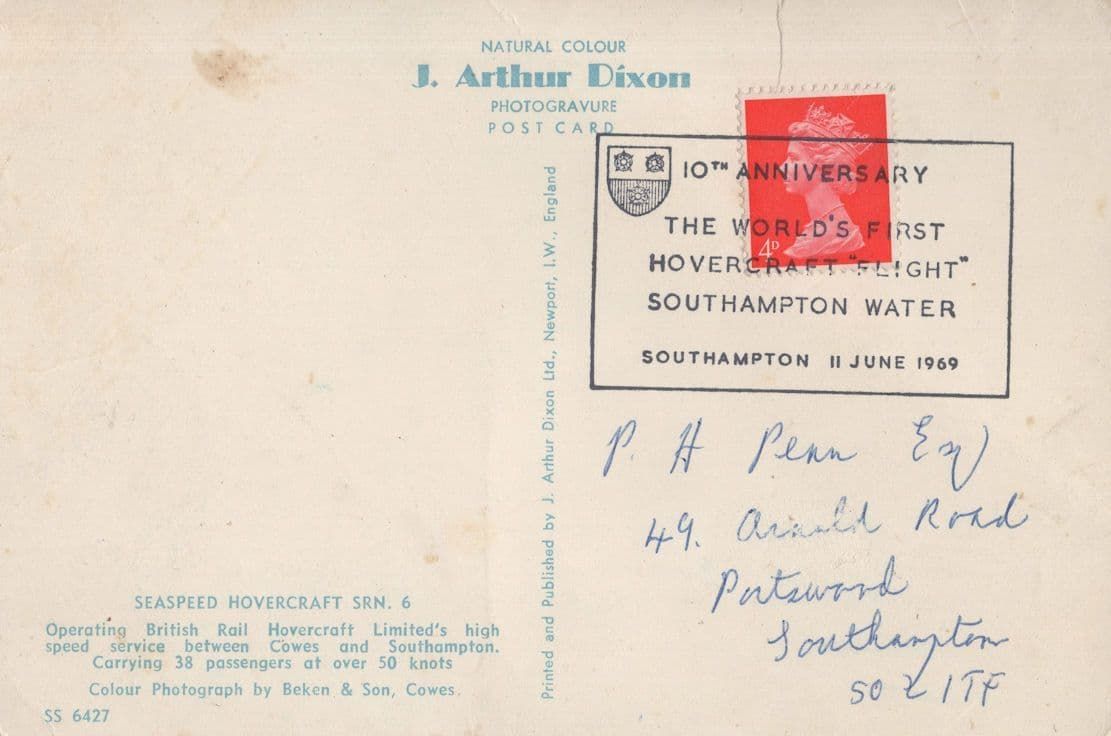 NATURAL COLOUR
J. Arthur Dixon
PHOTOGRAVURE
POST CARD
4D
10TH ANNIVERSARY
THE WORLD'S FIRST
HOVERCRAFT "FLIGHT"
SOUTHAMPTON WATER
SOUTHAMPTON 11 JUNE 1969
Printed and Published by J. Arthur Dixon Ltd., Newport, I.W., England
P. H Penn Esq
49. Arnold Road
Portswood
Southampton
SO2 1TF
SEASPEED HOVERCRAFT SRN. 6
Operating British Rail Hovercraft Limited's high
speed service between Cowes and Southampton.
Carrying 38 passengers at over 50 knots
Colour Photograph by Beken & Son, Cowes.
SS 6427